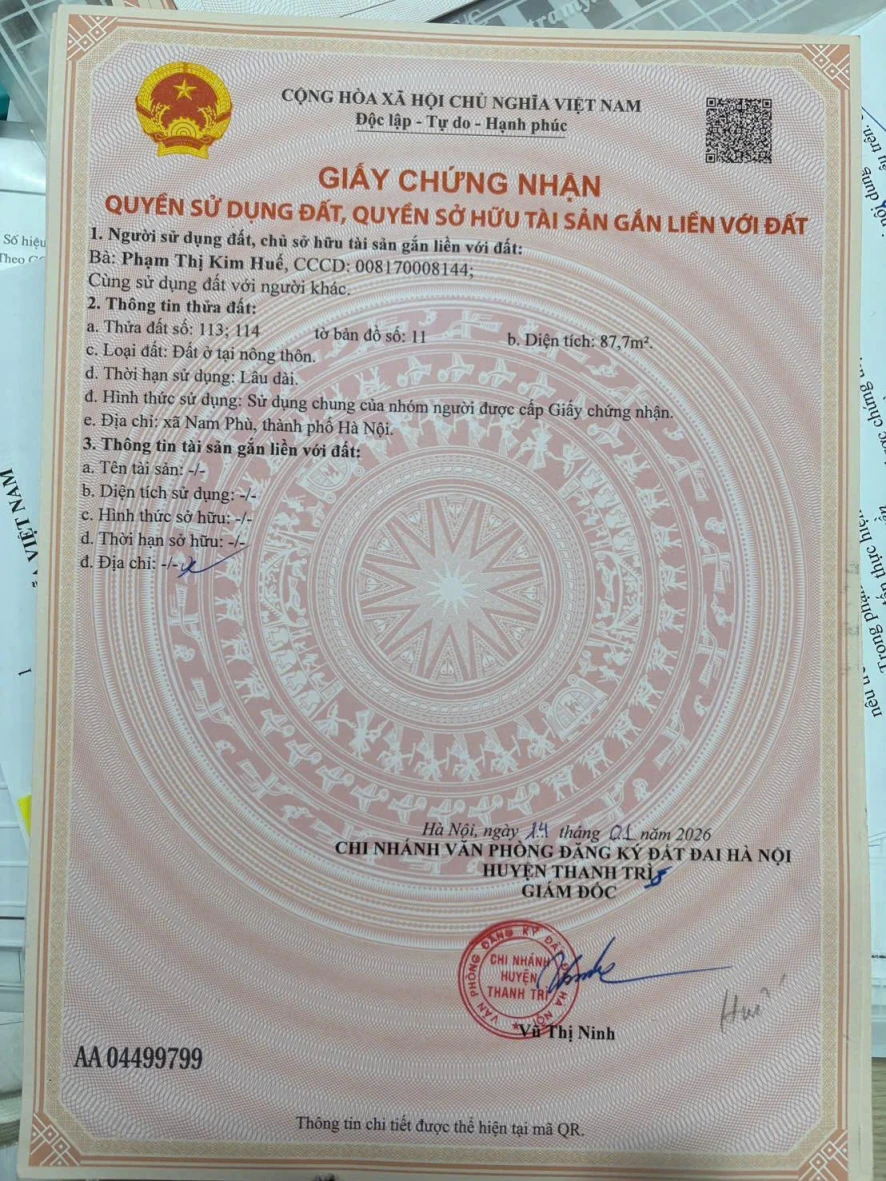 CỘNG HÒA XÃ HỘI CHỦ NGHĨA VIỆT NAM
Độc lập - Tự do - Hạnh phúc
GIẤY CHỨNG NHẬN
QUYỀN SỬ DỤNG ĐẤT, QUYỀN SỞ HỮU TÀI SẢN GẮN LIỀN VỚI ĐẤT
1. Người sử dụng đất, chủ sở hữu tài sản gắn liền với đất:
Bà: Phạm Thị Kim Huế, CCCD: 008170008144;
Cùng sử dụng đất với người khác.
2. Thông tin thửa đất:
a. Thửa đất số: 113; 114 tờ bản đồ số: 11 b. Diện tích: 87,7m².
c. Loại đất: Đất ở tại nông thôn.
d. Thời hạn sử dụng: Lâu dài.
đ. Hình thức sử dụng: Sử dụng chung của nhóm người được cấp Giấy chứng nhận.
e. Địa chỉ: xã Nam Phù, thành phố Hà Nội.
3. Thông tin tài sản gắn liền với đất:
a. Tên tài sản: -/-
b. Diện tích sử dụng: -/-
c. Hình thức sở hữu: -/-
d. Thời hạn sở hữu: -/-
đ. Địa chỉ: -/-
Hà Nội, ngày 14 tháng 01 năm 2026
CHI NHÁNH VĂN PHÒNG ĐĂNG KÝ ĐẤT ĐAI HÀ NỘI
HUYỆN THANH TRÌ
GIÁM ĐỐC
VĂN PHÒNG ĐĂNG KÝ ĐẤT HÀ NỘI
CHI NHÁNH
HUYỆN
THANH TRÌ
Vũ Thị Ninh
AA 04499799
Thông tin chi tiết được thể hiện tại mã QR.
Số hiệu
VIỆT NAM